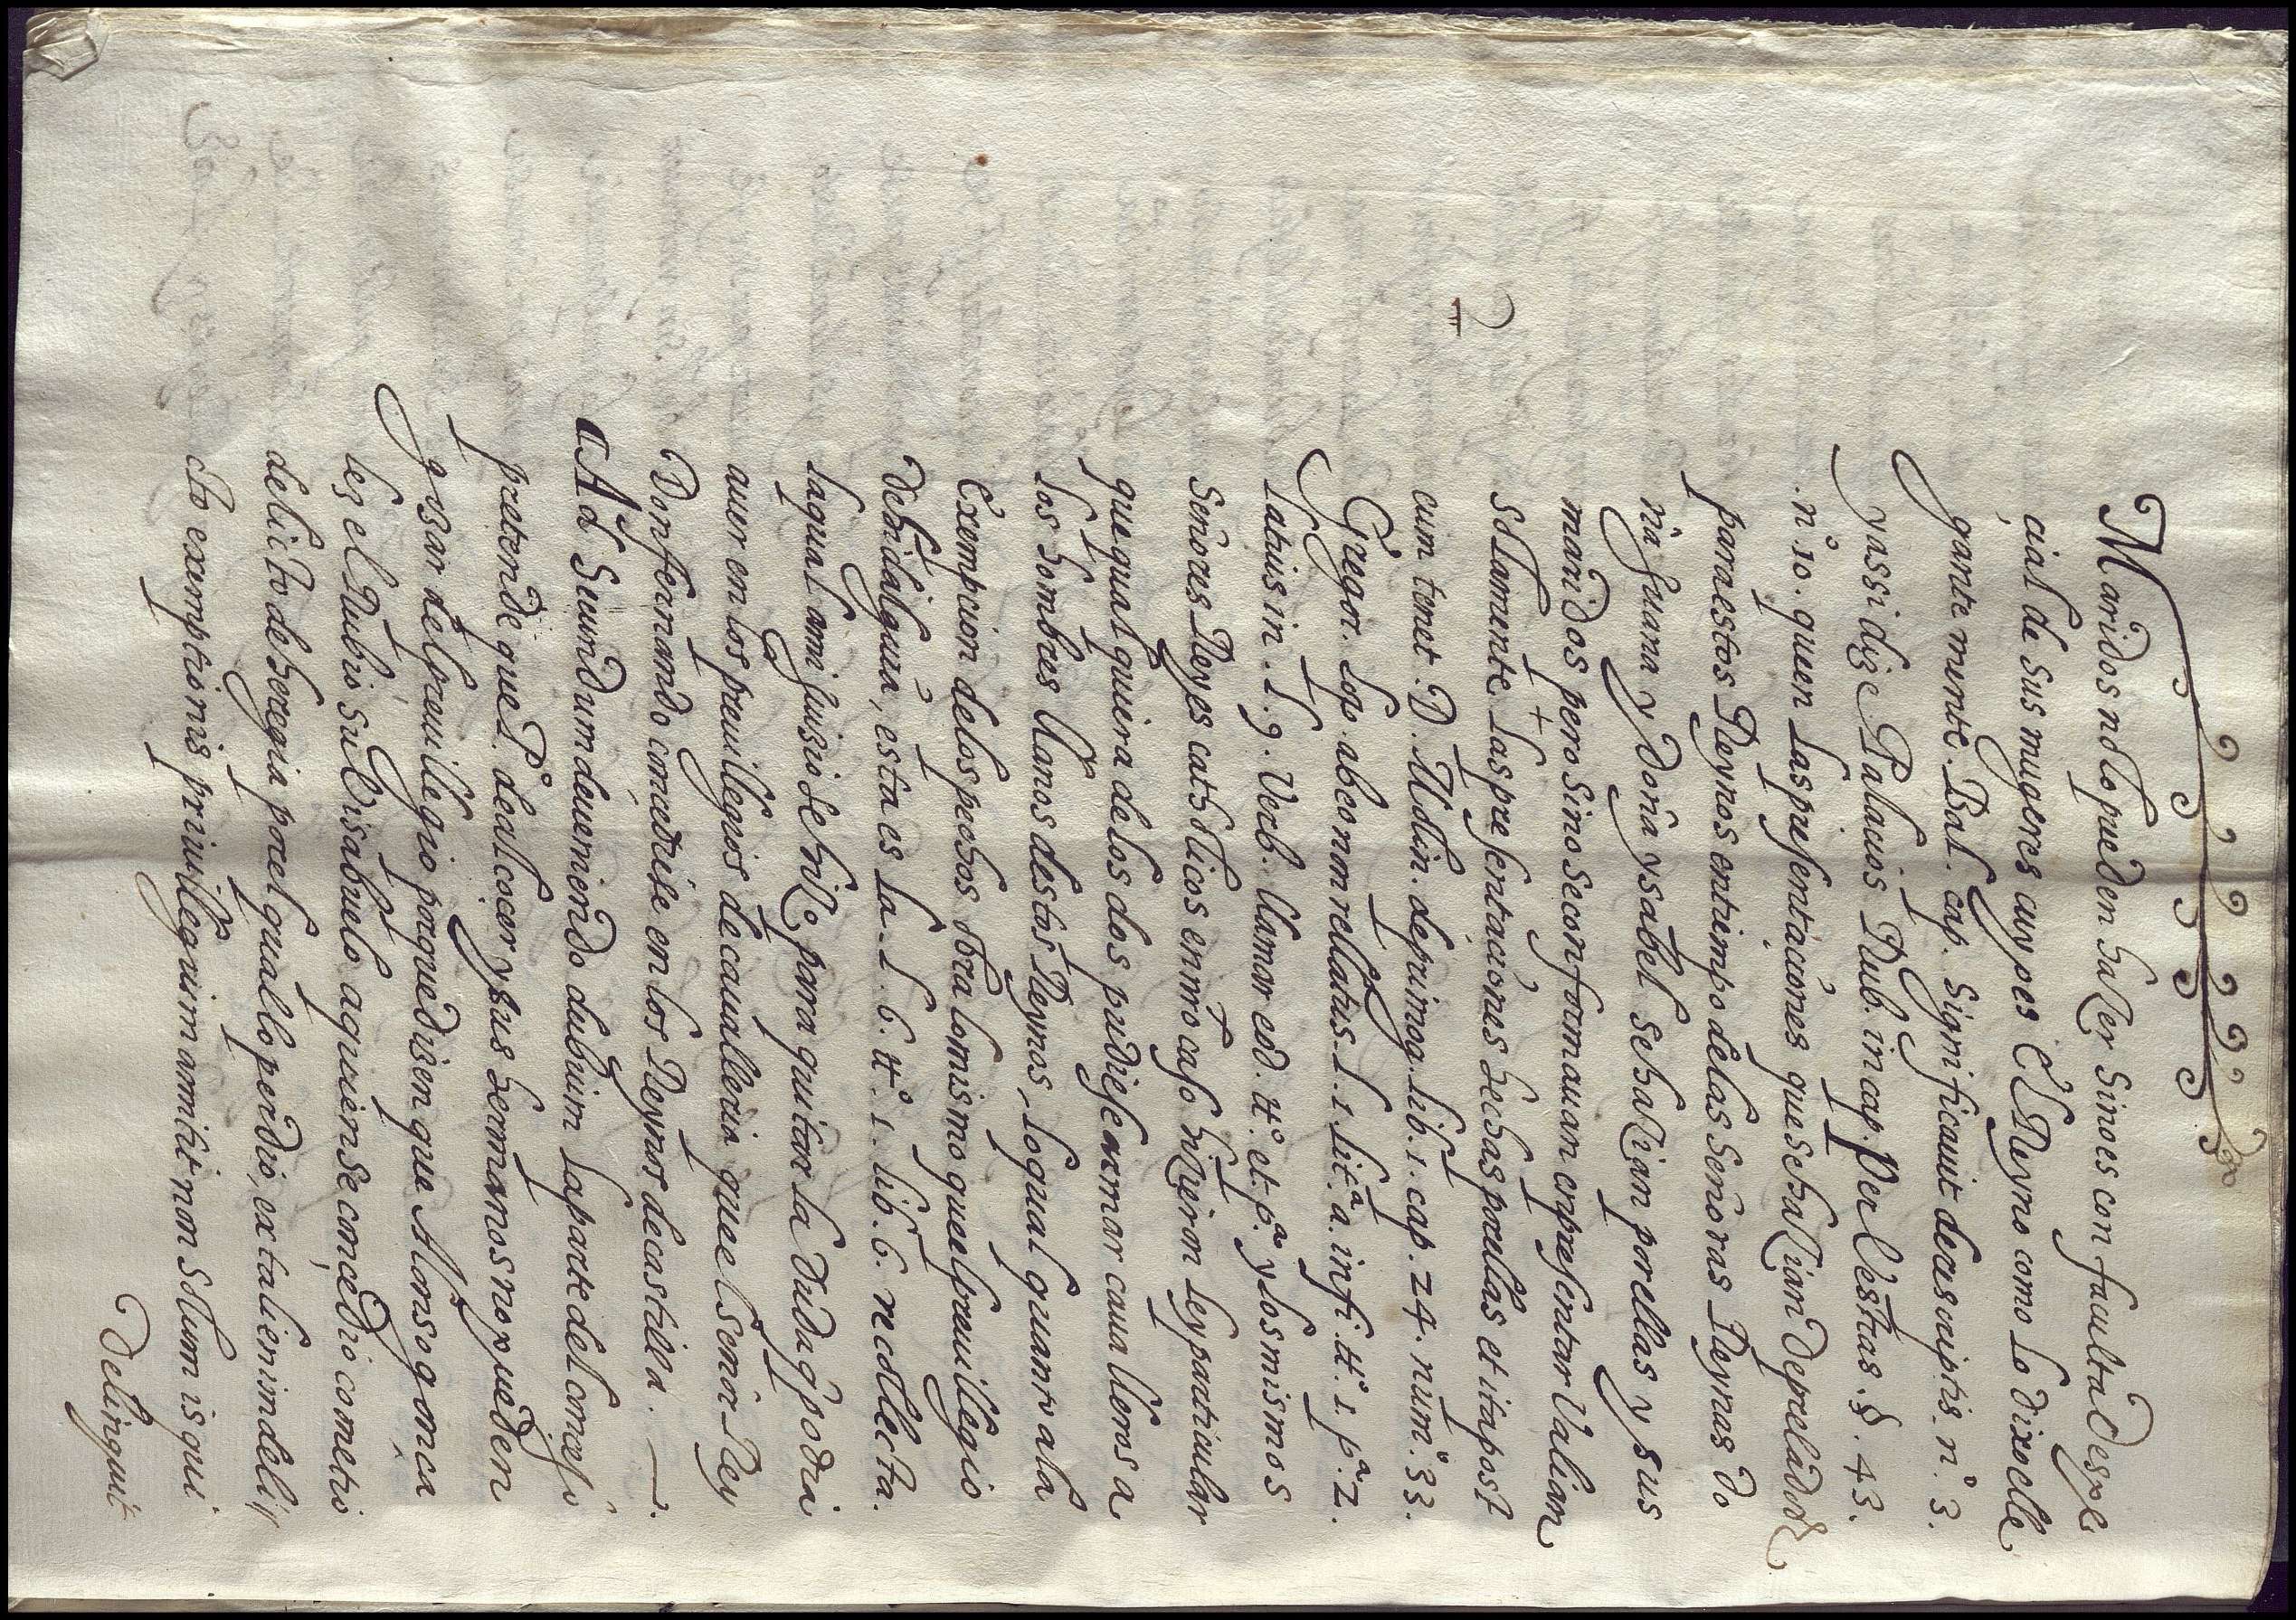 Maridos no lo pueden hacer sino es con facultad espe
cial de sus mugeres cuyo es el Reyno como lo dixo ele
gantemente. Bal. cap. significauit de rescriptis. nº. 3.
y assi dize Palacios Rub. in cap. Per Vestras. §. 43.
nº 10. que en las presentaciones que se hacian de prelados
para estos Reynos en tiempo de las señoras Reynas do
ña Juana y Doña ysabel se hacian por ellas y sus
maridos pero si no se conformauan en presentar Valian
solamente las presentaciones hechas por ellas et ita post
eum tenet. D. Molin. de primog. lib. 1. cap. 24. num. 33.
2
Gregor. Lop. ab eo non relatus. l. 1. litª a. in fi. ttº. 1. pª. 2.
latius in. l. 9. Verb. llamar eod. ttº. et pª. y los mismos
señores Reyes catholicos en nro caso hicieron ley particular
que qualquiera de los dos pudiese armar caualleros a
los hombres llanos destos Reynos, lo qual quanto a la
exempcion de los pechos obra lo mismo que el preuilegio
de hidalguia, esta es la. l. 6. ttº. 1. lib. 6. recollecta.
la qual a mi juisio se hiço para quitar la duda q̃ podia
auer en los preuillegios de caualleria que el señor Rey
Don fernando concediese en los Reynos de castilla. —.
Ad Secundum deueniendo dubium la parte del concejo
pretende que Pº. de alcocer y sus hermanos no pueden
gozar del preuilegio porque disen que Alonso gonça
lez el Rubio su bisabuelo a quien se concedio cometio
delicto de heregia por el qual lo perdio, ex tali enim deli//
cto exemptionis priuilegium amitit non solum is qui
Delinquit